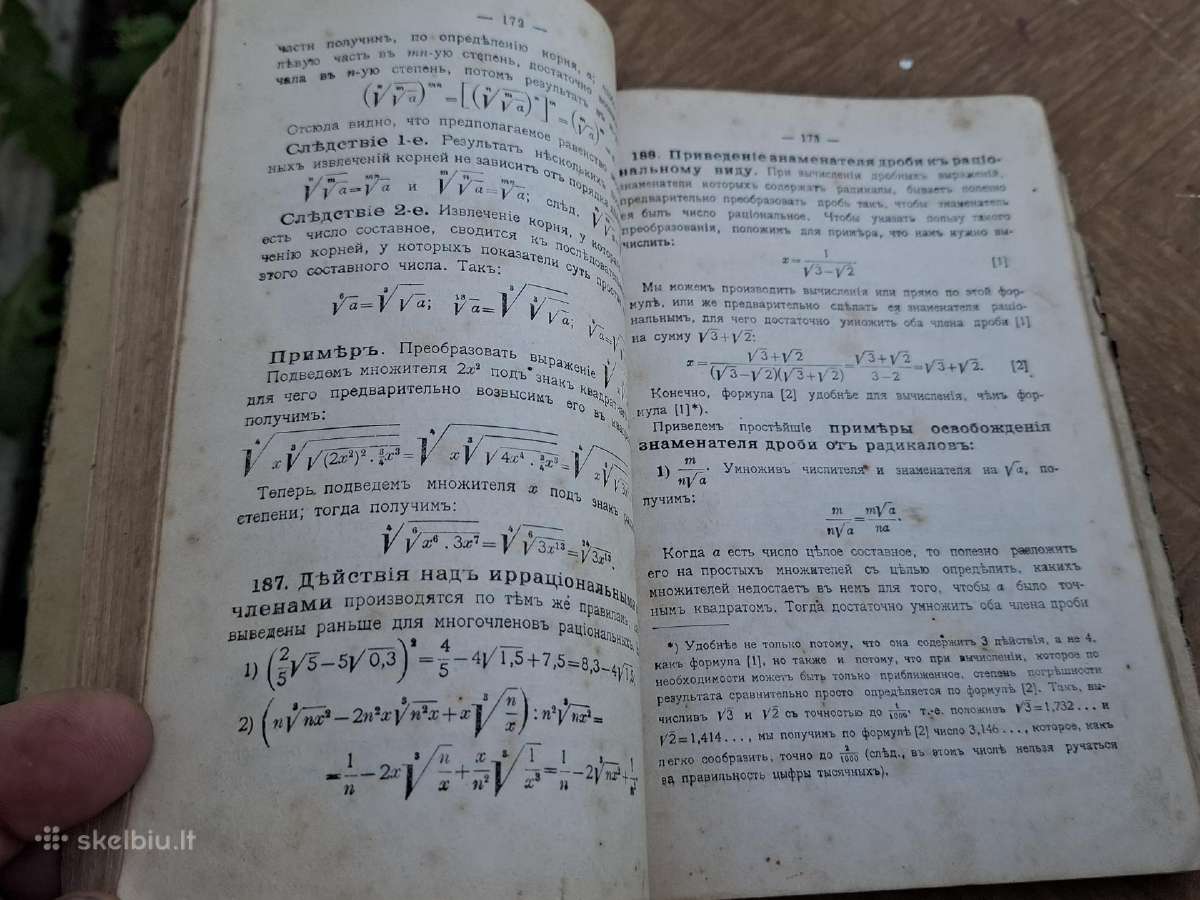 — 172 —
части получимъ, по опредѣленію корня, a;
лѣвую часть въ mn-ую степень, достаточно
чала въ n-ую степень, потомъ результатъ
(ⁿ√ᵐ√a)ᵐⁿ = [(ⁿ√ᵐ√a)ⁿ]ᵐ = (ᵐ√a)ᵐ
Отсюда видно, что предполагаемое равенство
Слѣдствіе 1-е. Результатъ нѣсколькихъ
ныхъ извлеченій корней не зависитъ отъ порядка
ⁿ√ᵐ√a = ᵐⁿ√a и ᵐ√ⁿ√a = ᵐⁿ√a; слѣд.
Слѣдствіе 2-е. Извлеченіе корня, у
есть число составное, сводится къ
ченію корней, у которыхъ показатели суть
этого составного числа. Такъ:
⁶√a = ³√√a; ¹⁸√a = ³√³√√a;
Примѣръ. Преобразовать выраженіе
Подведемъ множителя 2x² подъ знакъ
для чего предварительно возвысимъ его въ
получимъ:
⁴√x³√√(2x²)² · ¾x³ = ⁴√x³√√4x⁴ · ¾x³ =
Теперь подведемъ множителя x подъ знакъ
степени; тогда получимъ:
⁴√⁶√x⁶ . 3x⁷ = ⁴√⁶√3x¹³ = ²⁴√3x¹³.
187. Дѣйствія надъ ирраціональными
членами производятся по тѣмъ же правиламъ,
выведены раньше для многочленовъ раціональныхъ.
1) (2/5 √5 − 5√0,3)² = 4/5 − 4√1,5 + 7,5 = 8,3 − 4√1,5.
2) (n³√nx² − 2n²x³√n²x + x³√n/x) : n²³√nx² =
= 1/n − 2x³√n/x + x/n² ³√1/x³ = 1/n − 2³√nx² + 1/n²
— 173 —
188. Приведеніе знаменателя дроби къ раціо-
нальному виду. При вычисленіи дробныхъ выраженій,
знаменатели которыхъ содержатъ радикалы, бываетъ полезно
предварительно преобразовать дробь такъ, чтобы знаменатель
ея былъ число раціональное. Чтобы указать пользу такого
преобразованія, положимъ для примѣра, что намъ нужно вы-
числить:
x = 1/(√3 − √2) [1]
Мы можемъ производить вычисленія или прямо по этой фор-
мулѣ, или же предварительно сдѣлать ея знаменателя раціо-
нальнымъ, для чего достаточно умножить оба члена дроби [1]
на сумму √3 + √2:
x = (√3 + √2)/((√3 − √2)(√3 + √2)) = (√3 + √2)/(3 − 2) = √3 + √2. [2]
Конечно, формула [2] удобнѣе для вычисленія, чѣмъ фор-
мула [1]*).
Приведемъ простѣйшіе примѣры освобожденія
знаменателя дроби отъ радикаловъ:
1) m/(n√a). Умноживъ числителя и знаменателя на √a, по-
лучимъ:
m/(n√a) = m√a/(na).
Когда a есть число цѣлое составное, то полезно разложить
его на простыхъ множителей съ цѣлью опредѣлить, какихъ
множителей недостаетъ въ немъ для того, чтобы a было точ-
нымъ квадратомъ. Тогда достаточно умножить оба члена дроби
*) Удобнѣе не только потому, что она содержитъ 3 дѣйствія, а не 4,
какъ формула [1], но также и потому, что при вычисленіи, которое по
необходимости можетъ быть только приближенное, степень погрѣшности
результата сравнительно просто опредѣляется по формулѣ [2]. Такъ, вы-
числивъ √3 и √2 съ точностью до 1/1000, т.-е. положивъ √3 = 1,732 . . . и
√2 = 1,414 . . ., мы получимъ по формулѣ [2] число 3,146 . . ., которое, какъ
легко сообразить, точно до 2/1000 (слѣд., въ этомъ числѣ нельзя ручаться
за правильность цыфры тысячныхъ).
skelbiu.lt